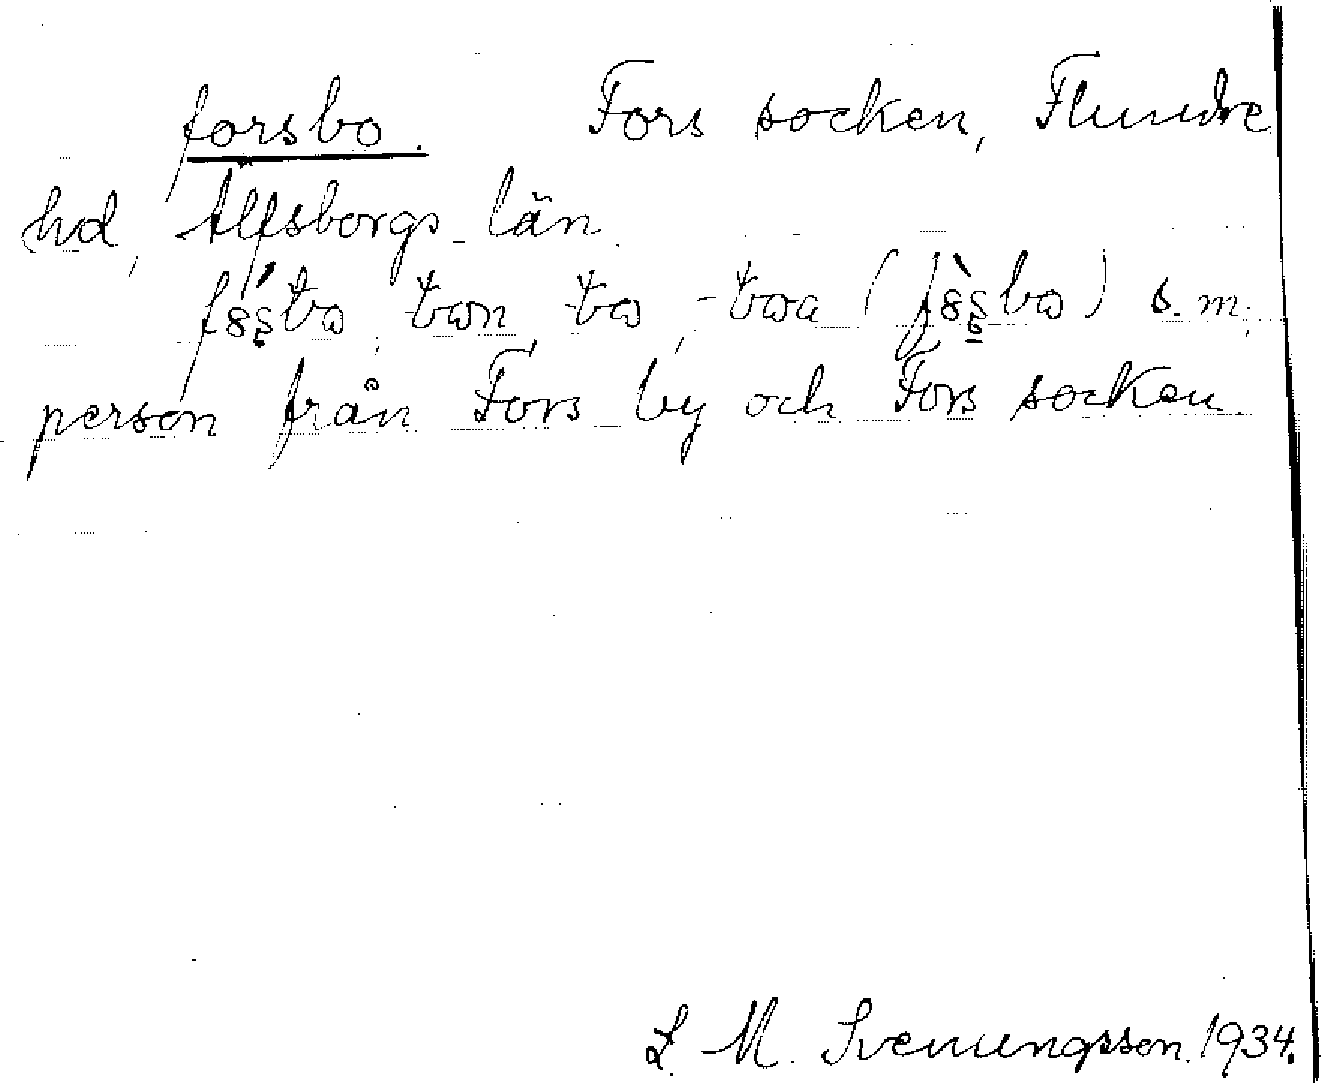 forsbo. Fors socken, Flundre
hd, Älfsborgs län.
s. m.
person från Fors by och Fors socken.
L. M. Svenungsson. 1934.